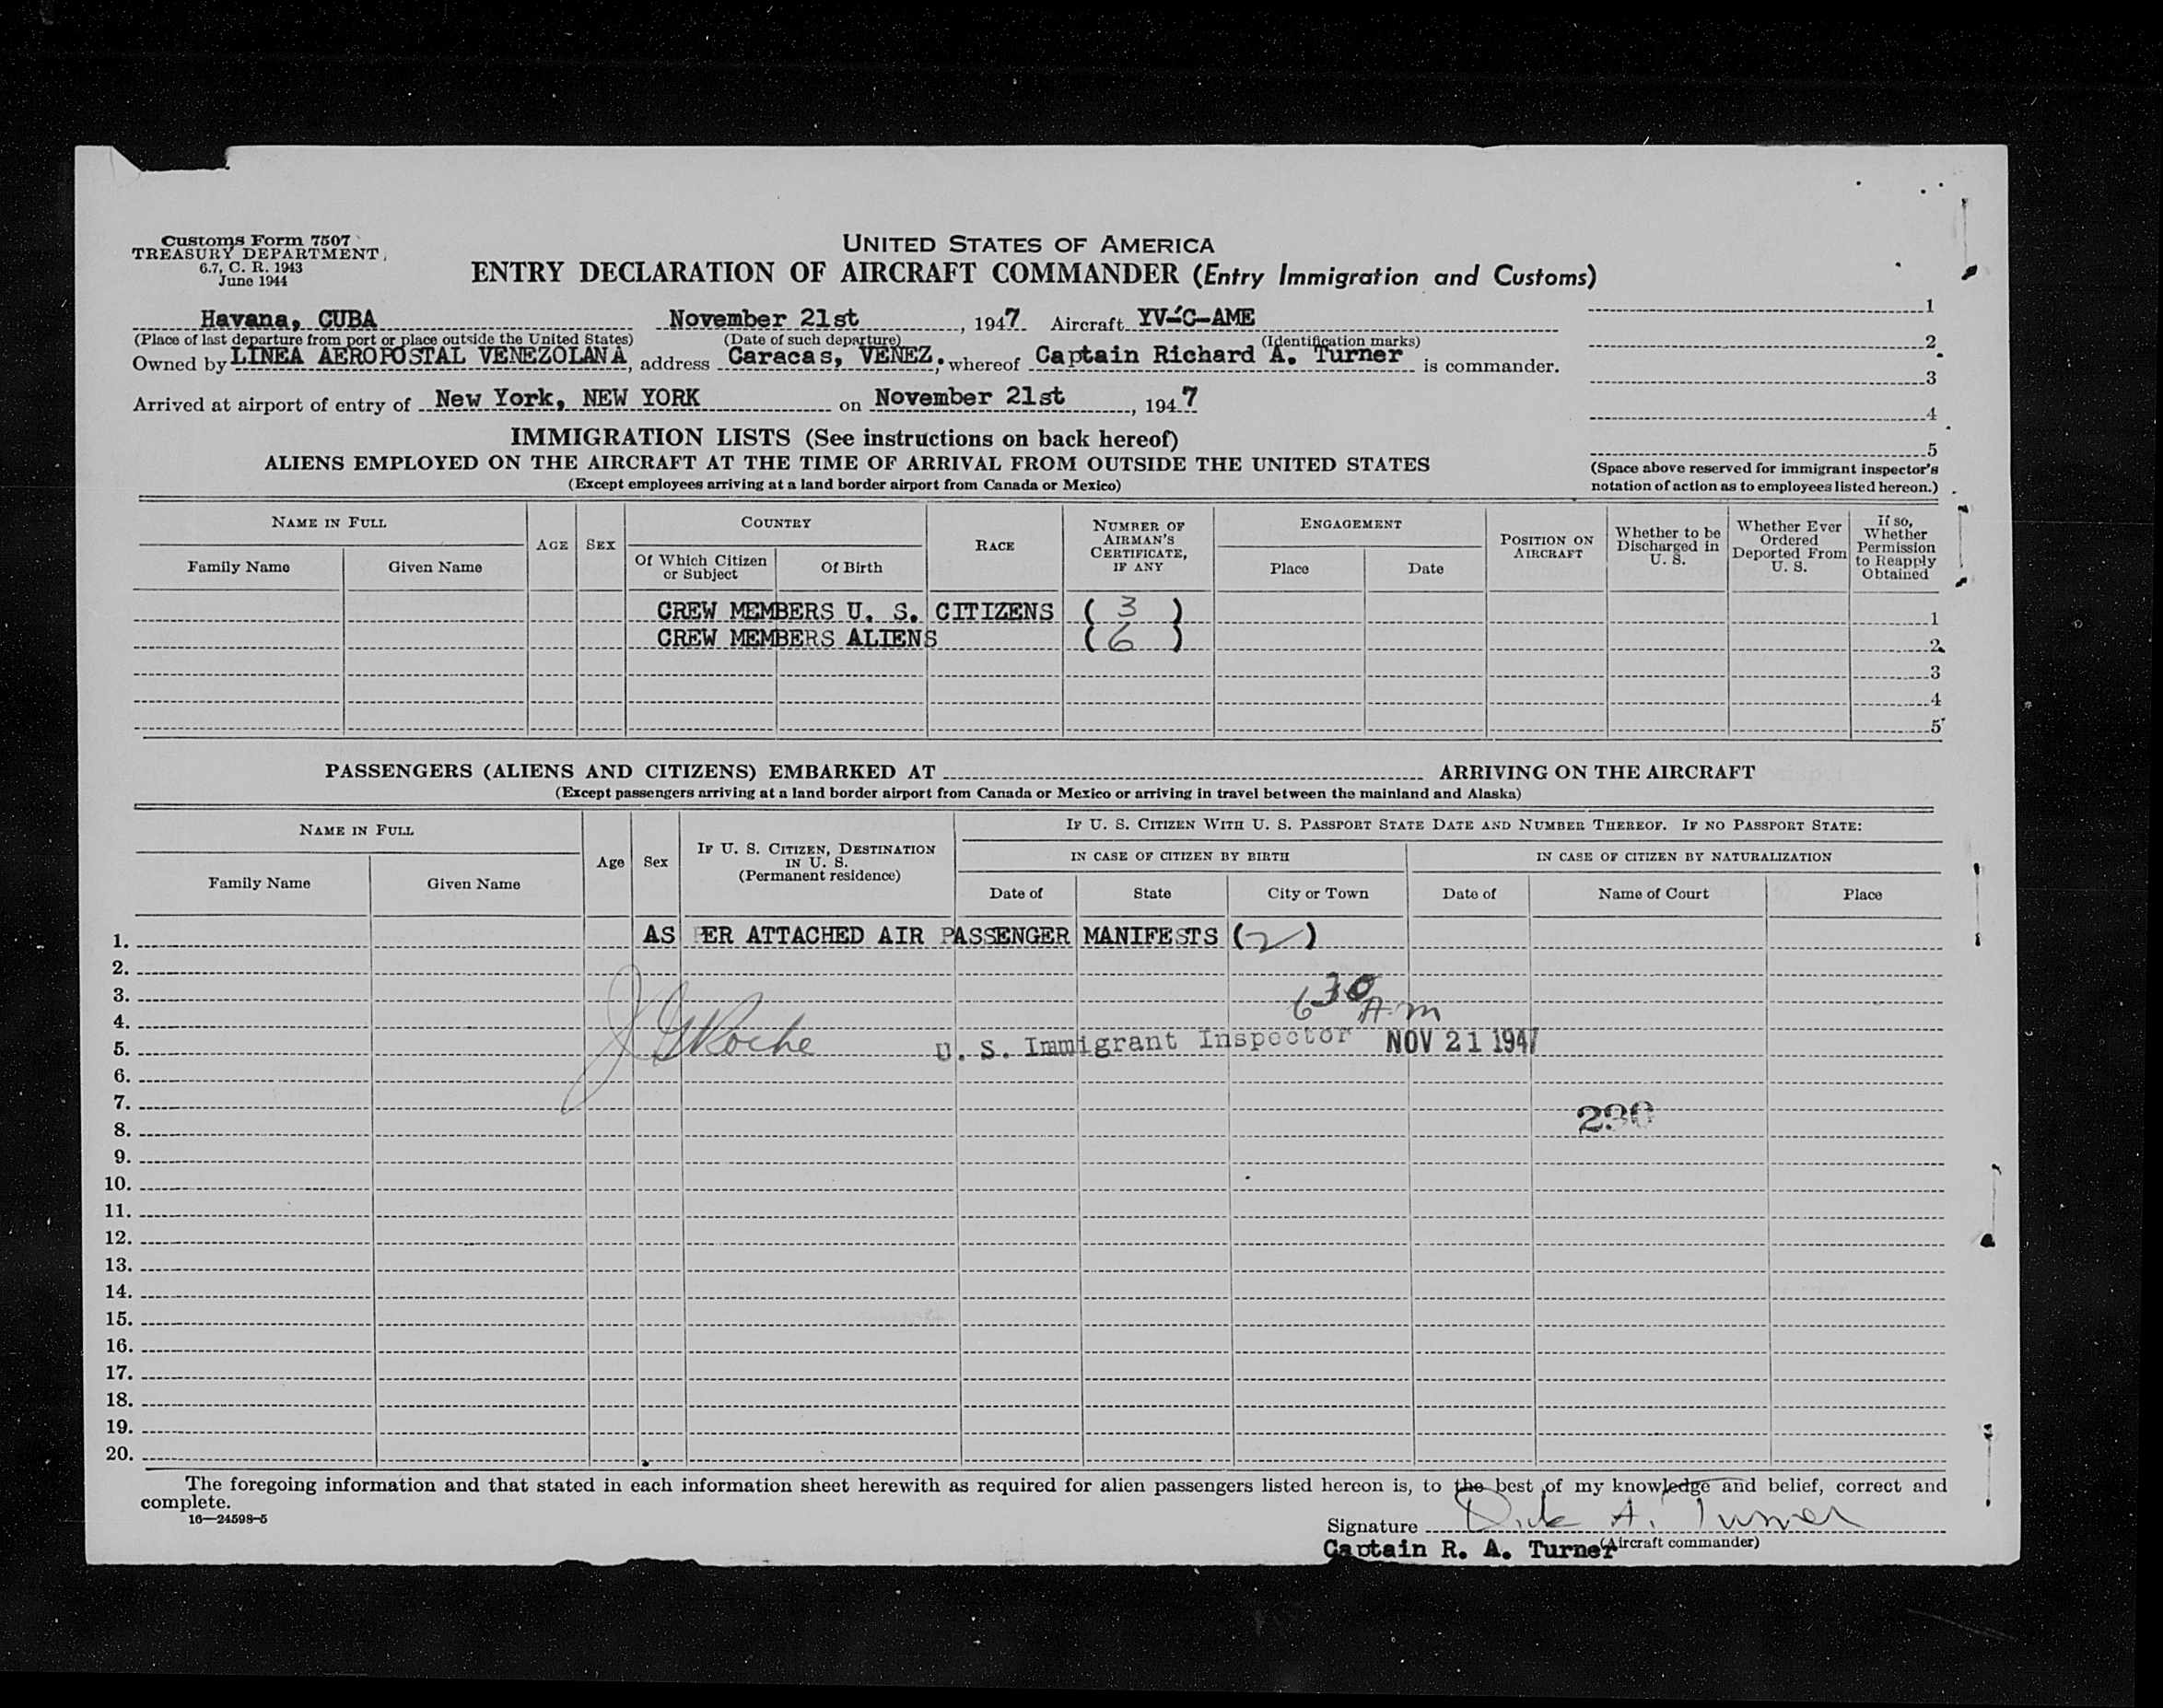 Customs Form 7507
TREASURY DEPARTMENT
6.7, C. R. 1943
June 1944
UNITED STATES OF AMERICA
ENTRY DECLARATION OF AIRCRAFT COMMANDER (Entry Immigration and Customs)
Havana, CUBA November 21st, 1947 Aircraft YV-C-AME
(Place of last departure from port or place outside the United States) (Date of such departure) (Identification marks)
Owned by LINEA AEROPOSTAL VENEZOLANA, address Caracas, VENEZ., whereof Captain Richard A. Turner is commander.
Arrived at airport of entry of New York, NEW YORK on November 21st, 1947
1
2
3
4
5
(Space above reserved for immigrant inspector's
notation of action as to employees listed hereon.)
IMMIGRATION LISTS (See instructions on back hereof)
ALIENS EMPLOYED ON THE AIRCRAFT AT THE TIME OF ARRIVAL FROM OUTSIDE THE UNITED STATES
(Except employees arriving at a land border airport from Canada or Mexico)
NAME IN FULL
Family Name
Given Name
AGE
SEX
COUNTRY
Of Which Citizen
or Subject
Of Birth
RACE
NUMBER OF
AIRMAN'S
CERTIFICATE,
IF ANY
ENGAGEMENT
Place
Date
POSITION ON
AIRCRAFT
Whether to be
Discharged in
U. S.
Whether Ever
Ordered
Deported From
U. S.
If so,
Whether
Permission
to Reapply
Obtained
CREW MEMBERS U. S. CITIZENS ( 3 ) 1
CREW MEMBERS ALIENS ( 6 ) 2
3
4
5
PASSENGERS (ALIENS AND CITIZENS) EMBARKED AT ARRIVING ON THE AIRCRAFT
(Except passengers arriving at a land border airport from Canada or Mexico or arriving in travel between the mainland and Alaska)
NAME IN FULL
Family Name
Given Name
Age
Sex
IF U. S. CITIZEN, DESTINATION
IN U. S.
(Permanent residence)
IF U. S. CITIZEN WITH U. S. PASSPORT STATE DATE AND NUMBER THEREOF. IF NO PASSPORT STATE:
IN CASE OF CITIZEN BY BIRTH
IN CASE OF CITIZEN BY NATURALIZATION
Date of
State
City or Town
Date of
Name of Court
Place
1. AS PER ATTACHED AIR PASSENGER MANIFESTS (2)
2.
3. 6 30
4. A.m
5. J G Roche U. S. Immigrant Inspector NOV 21 1947
6.
7. 230
8.
9.
10.
11.
12.
13.
14.
15.
16.
17.
18.
19.
20.
The foregoing information and that stated in each information sheet herewith as required for alien passengers listed hereon is, to the best of my knowledge and belief, correct and
complete.
16—24598-5
Signature Dick A. Turner
Captain R. A. Turner (Aircraft commander)